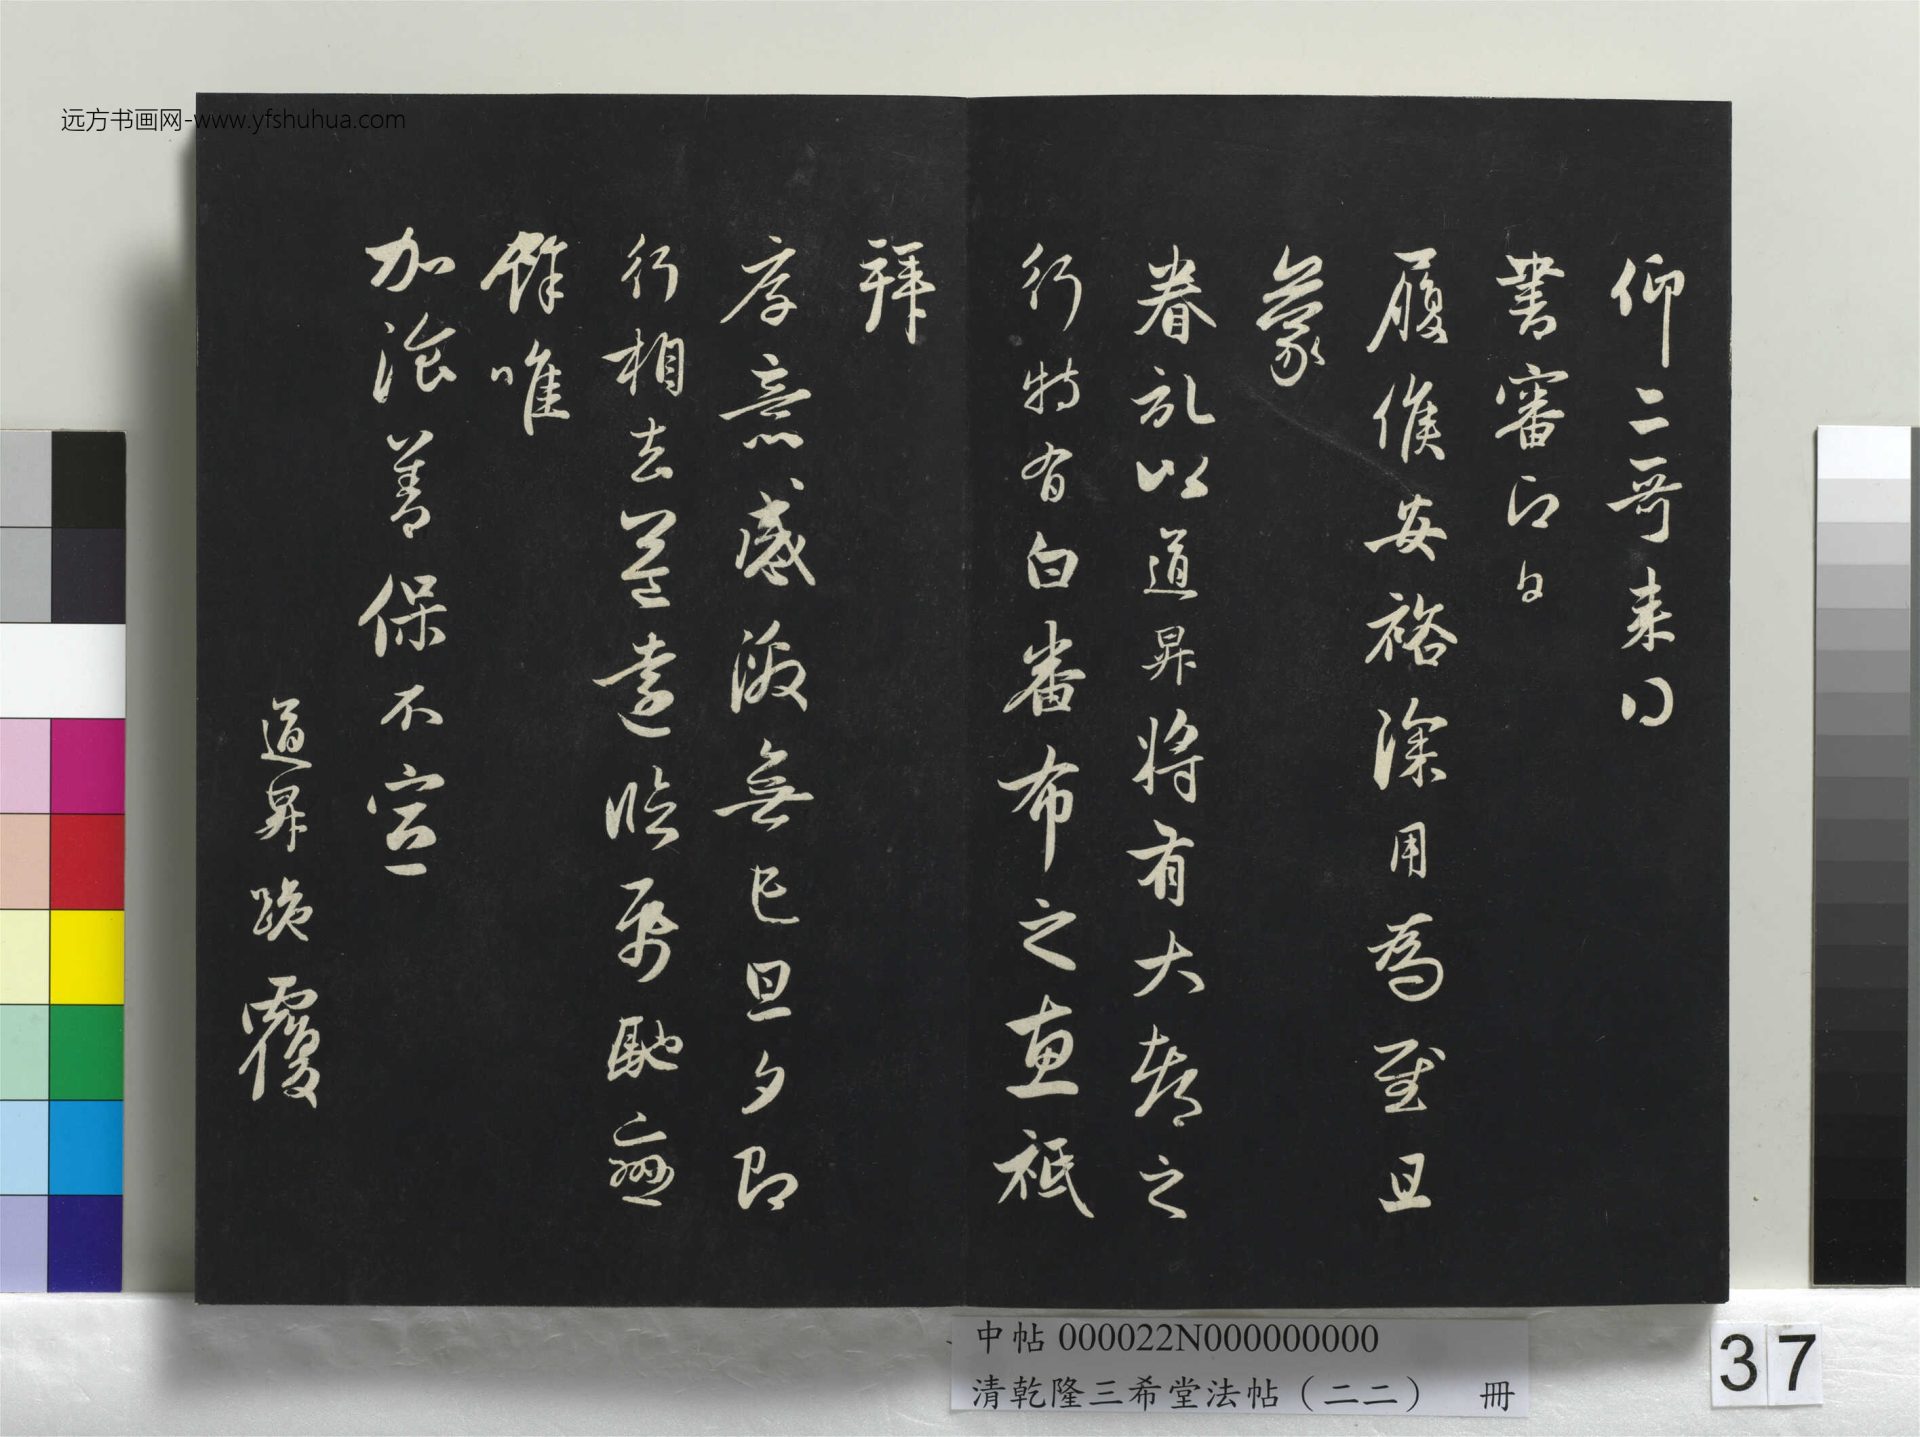 远方书画网-www.yfshuhua.com
仰二哥来日
書審即日
履候安裕深用為慰且
蒙
眷記以道昇將有大都之
行特有白番布之惠祗
拜
厚意感激無已旦夕即
行相去益遠臨紙馳戀
餘唯
加飡善保不宣
道昇跪覆
中帖 000022N000000000
清乾隆三希堂法帖（二二） 冊
37